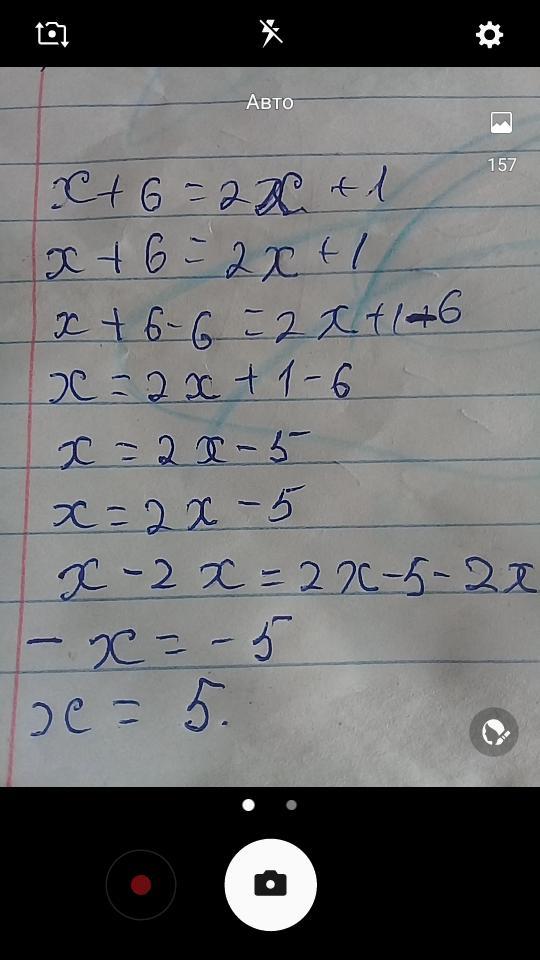 Авто
157
x + 6 = 2x + 1
x + 6 = 2x + 1
x + 6 - 6 = 2x + 1 - 6
x = 2x + 1 - 6
x = 2x - 5
x = 2x - 5
x - 2x = 2x - 5 - 2x
- x = - 5
x = 5.